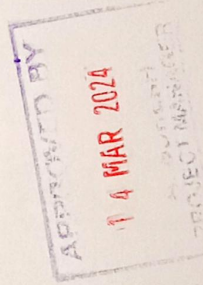 APPROVED BY
14 MAR 2024
PROJECT MANAGER